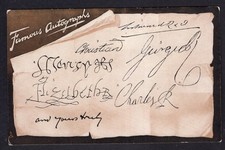 Famous Autographs
Edward R & I
Christian
George R
Elizabeth R
Charles R
and yours truly